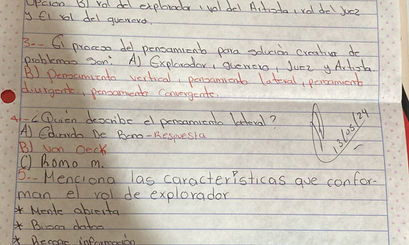 Opción B) rol del explorador, rol del Artista, rol del Juez
y El rol del guerrero.
3.- El proceso del pensamiento para solución creativa de
problemas son: A) Explorador, guerrero, Juez y Artista.
B) Pensamiento vertical, pensamiento lateral, pensamiento
divergente, pensamiento convergente.
4.- ¿Quien describe el pensamiento lateral?
A) Eduardo De Bono - Respuesta
B) Von Oeck
C) Romo M.
13/05/24
5.- Menciona las características que confor-
man el rol de explorador
* Mente abierta
* Busca datos
* Recoge información